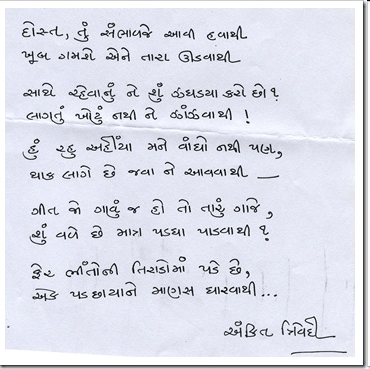 દોસ્ત, તું સંભાળજે આવી હવાથી
ખૂબ ગમશે એને તારા ઊડવાથી
સાથે રહેવાનું ને શું ઝઘડયા કરો છો ?
લાગતું ખોટું નથી ને ઝાંઝવાથી !
હું રહુ અહીંયા મને વાંધો નથી પણ,
થાક લાગે છે જવા ને આવવાથી –
ગીત જો ગાવું જ હો તો તારું ગાજે,
શું વળે છે માત્ર પડઘા પાડવાથી ?
ફેર ભીંતોની તિરાડોમાં પડે છે,
એક પડછાયાને માણસ ધારવાથી...
અંકિત ત્રિવેદી